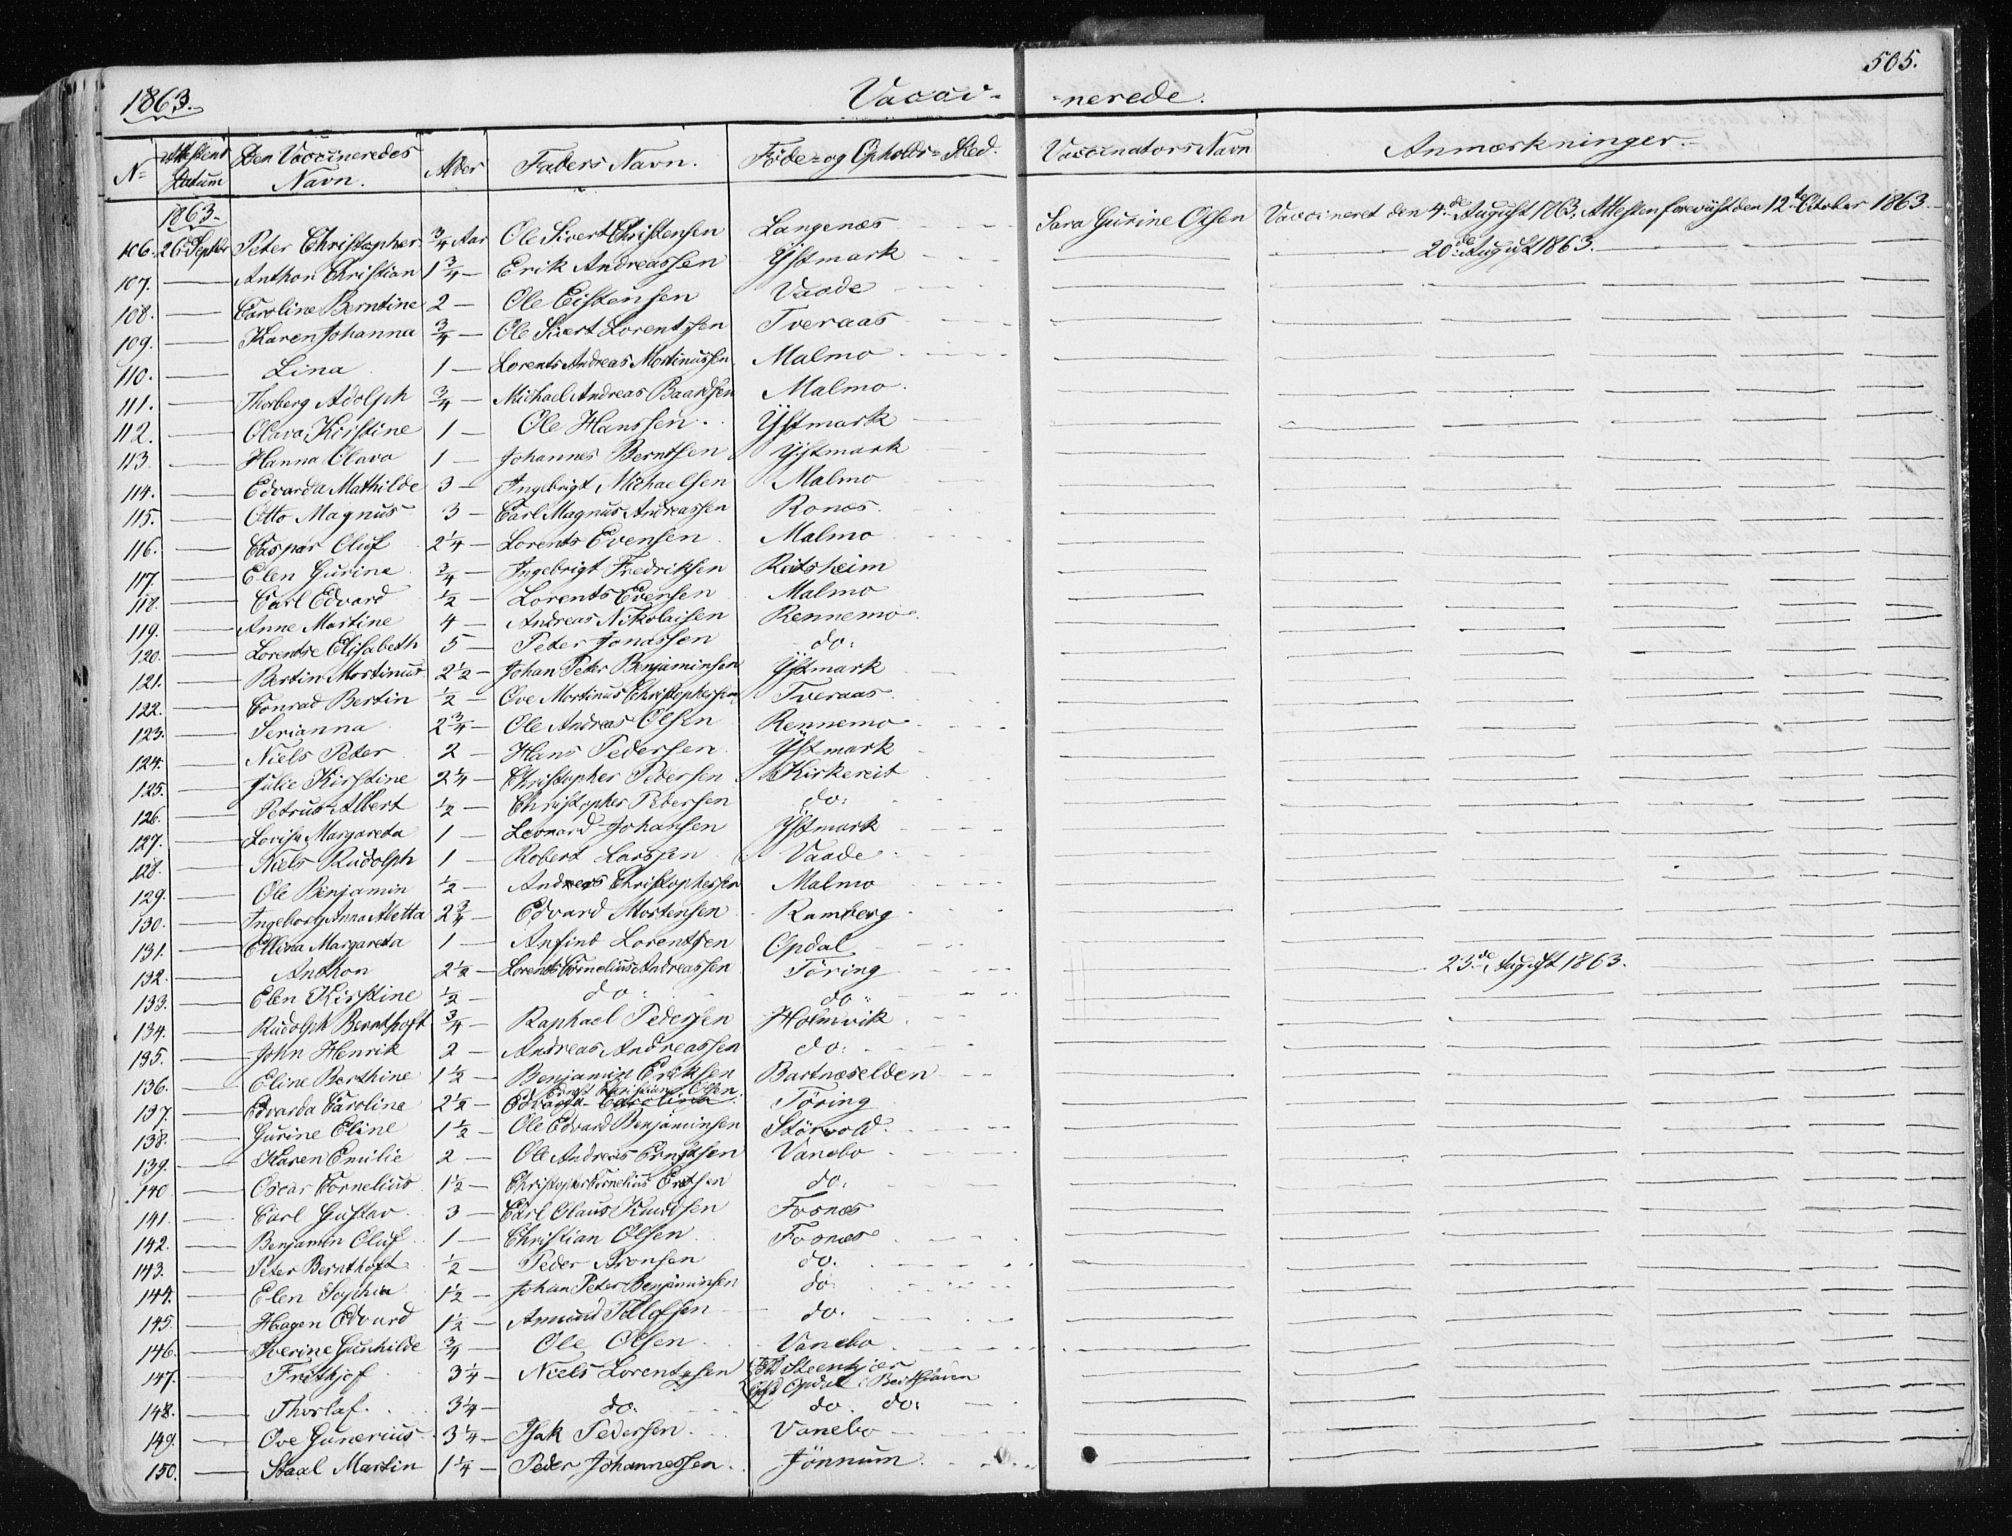 1863. Vacci- -nerede. 505.
N= Attestens Datum Den Vaccineredes Navn. Alder Faders Navn. Föde- og Opholds-Sted. Vaccinators Navn Anmærkninger.
1863.
106. 26 Septbr Peter Christopher 3/4 Aar Ole Sivert Christensen Langenæs Sara Gurine Olsen Vaccineret den 4de August 1863. Attesten forevüst den 12te October 1863.
107. — Anthon Christian 1 3/4 — Erik Andreassen Ÿstmark — 20de August 1863. —
108. — Caroline Berntine 2 — Ole Eistensen Vaade
109. — Karen Johanna 3/4 — Ole Sivert Lorentzen Tveraas
110. — Lina 1 — Lorents Andreas Mortinussen Malmo
111. — Thorberg Adolph 3/4 — Michael Andreas Baardsen Malmo
112. — Olava Kirstine 1 — Ole Hanssen Ÿstmark
113. — Hanna Olava 1 — Johannes Berntsen Ÿstmark
114. — Edvarda Mathilde 3 — Ingebrigt Michaelsen Malmo
115. — Otto Magnus 3 — Carl Magnus Andreassen Ronæs
116. — Caspar Oluf 2 1/4 — Lorents Evensen Malmo
117. — Elen Gurine 3/4 — Ingebrigt Fredriksen Ritsheim
118. — Carl Edvard 1/2 — Lorents Evensen Malmo
119. — Anne Martine 4 — Andreas Nikolaisen Rennemo
120. — Lorentse Elisabeth 5 — Peter Jonassen do:
121. — Bertin Mortinus 2 1/2 — Johan Peter Benjaminsen Ÿstmark
122. — Conrad Bertin 1/2 — Ove Mortinus Christophersen Tveraas
123. — Serianna 2 3/4 — Ole Andreas Olsen Rennemo
124. — Niels Peter 2 — Hans Pedersen Ÿstmark
125. — Julie Kirstine 2 1/4 — Christopher Pedersen Kirkereit
126. — Petrus Albert 1/2 — Christopher Pedersen do:
127. — Lovise Margareta 1 — Leonard Johansen Ÿstmark
128. — Niels Rudolph 1 — Robert Larssen Vaade
129. — Ole Benjamin 1/2 — Andreas Christophersen Malmo
130. — Ingeborg Anna Aletta 2 3/4 — Edvard Mortensen Ramberg
131. — Ellina Margareta 1 — Anfind Lorentsen Opdal
132. — Anthon 2 1/2 — Lorents Cornelius Andreassen Töring 23de August 1863.
133. — Elen Kirstine 1/2 — do: do:
134. — Rudolph Bernthoft 3/4 — Raphael Pedersen Holmvik
135. — John Henrik 2 — Andreas Andreassen do:
136. — Eline Berthine 1 1/2 — Benjamin Eriksen Bartnæselden
137. — Edvarda Caroline 2 1/2 — Christian Olsen Töring
138. — Gurine Eline 1 1/2 — Ole Edvard Benjaminsen Störvold
139. — Karen Emilie 2 — Ole Andreas Ernstsen Vanebo
140. — Oscar Cornelius 1 1/2 — Christopher Cornelius do:
141. — Carl Gustav 3 — Carl Olaus Knudsen Fosnæs
142. — Benjamin Oluf 1 — Christian Olsen Fosnæs
143. — Peter Bernthoft 1/2 — Peder Aronsen do.
144. — Elen Sophia 1 1/2 — Johan Peter Benjaminsen do:
145. — Hagen Edvard 1 1/2 — Amund Tollofsen do.
146. — Iverine Gunhilde 3/4 — Ole Olsen Vanebo
147. — Frithjof 3 1/4 — Niels Lorentzen Steenkjær
Opdal i Beitstaden
148. — Thorlaf. 3 1/4 — do. do. do:
149. — Ove Gunerius 3 1/4 — Isak Pedersen Vanebo
150. — Staal Martin 1 1/4 — Peder Johannessen Jönnum